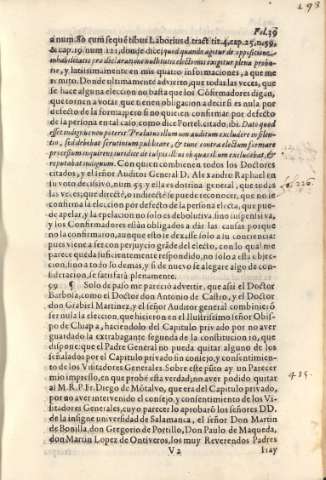 293
Fol.39
à num.80 cum sequẽtibus Laborius d. tract tit.4.cap.25.n.59.
& cap.19 num 121, donde dice; quod quando agitur de oppositione
inhabilitatis pro declaratione nullitatis electionis exigitur plena probatio,
y latissimamente en mis quatro informaciones, a que me
remito. Donde ultimamente advierto, que todas las veces, que
se hace alguna eleccion no basta que los Cõfirmadores digan,
que tornen a votar, que tienen obligacion a decir si es nula por
defecto de la forma, pero si no quieren confirmar por defecto
de la persona en tal caso, como dice Portel. citado, ibi. Dato quod
esset indignus non poterit Prælatus illum non auditum excludere in silentio,
sed debebat scrutinium publicare, & tunc contra electum formare
processum inquirens iuridice de culpis illius ob quas illum excludebat, &
reputabat indignum. Con quien combienen todos los Doctores
citados, y el señor Auditor General D. Alexandre Raphuel en
su voto decissivo, num. 55. y alla es dotrina general, que todas
las veces, que directè, o indirectè se puede reconocer, que no se
confirma la eleccion por defecto de la persona electa, que puede
apelar, y la apelacion no solo es debolutiva, sino suspensiva,
y los Confirmadores estàn obligados a dar las causas porque
no la confirmaron, aunque esto se dexasse solo a su conciencia:
pues viene a ser con perjuycio gráde del electo, con lo qual me
parece queda suficientemente respondido, no solo a esta objecion,
sino a todo lo demas, y si de nuevo se alegare algo de consideracion,
se satisfarà plenamente.
59 ¶ Solo de passo me pareciò advertir, que assi el Doctor
Barboia, como el Doctor don Antonio de Castro, y el Doctor
don Grabiel Martinez, y el señor Auditor general combiné ser
nula la eleccion, que hicieron en el Illustrissimo señor Obispo
de Chiapa, haciendolo del Capitulo privado por no aver
guardado la extrabagante segunda de la constitucion 10, que
dispone: que el Padre General no pueda quitar alguno de los
señalados por el Capitulo privado sin consejo, y consentimiento
de los Visitadores Generales. Sobre este pũto ay un Parecer
mio impresso, en que probè esta verdad; no aver podido quitar
al M.R.P.Fr. Diego de Motalvo, que era del Capitulo privado,
por no aver intervenido el consejo, y consentimento de los Visitadores
Generales, cuyo parecer lo aprobarõ los señores DD.
de la insigne universidad de Salamanca, el señor Don Martin
de Bonilla, don Gregorio de Portillo, Don Paulo de Maqueda,
don Martin Lopez de Ontiveros, los muy Reverendos Padres
V 2